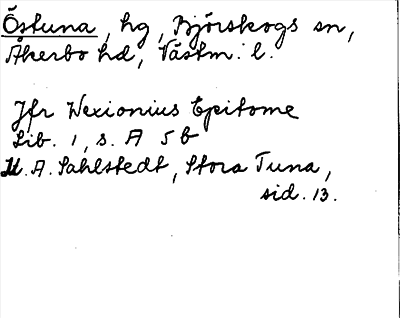 Östuna, hg, Björskogs sn,
Åkerbo hd, Västm. l.
Jfr Wexionius Epitome
Lib. 1, s. A 5 b
M. A. Sahlstedt, Stora Tuna,
sid. 13.